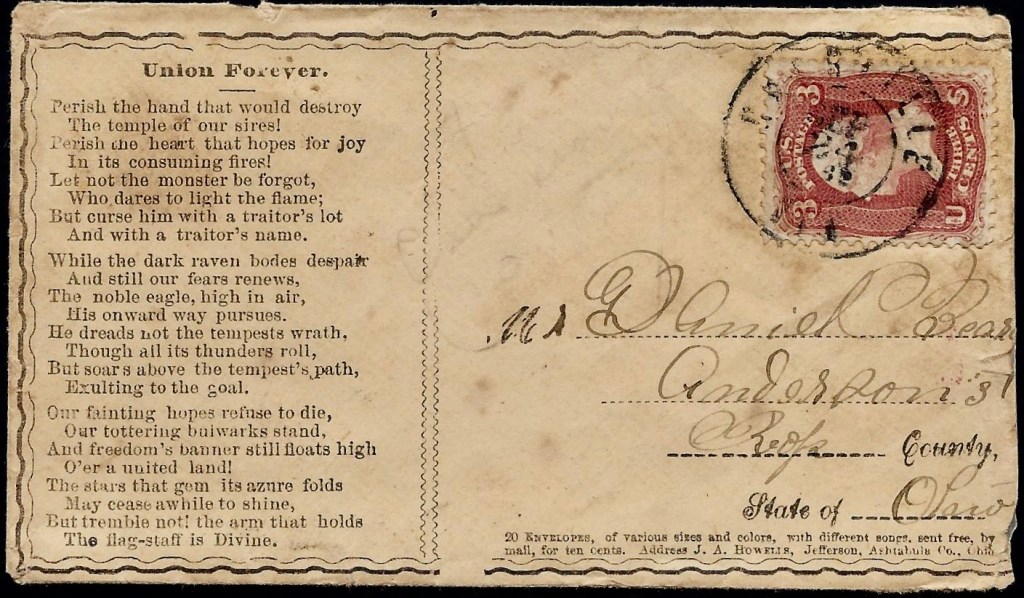 Union Forever.
Perish the hand that would destroy
The temple of our sires!
Perish the heart that hopes for joy
In its consuming fires!
Let not the monster be forgot,
Who dares to light the flame;
But curse him with a traitor's lot
And with a traitor's name.
While the dark raven bodes despair
And still our fears renews,
The noble eagle, high in air,
His onward way pursues.
He dreads not the tempests wrath,
Though all its thunders roll,
But soars above the tempest's path,
Exulting to the goal.
Our fainting hopes refuse to die,
Our tottering bulwarks stand,
And freedom's banner still floats high
O'er a united land!
The stars that gem its azure folds
May cease awhile to shine,
But tremble not! the arm that holds
The flag-staff is Divine.
U S POSTAGE
3 3
THREE CENTS
Mr Daniel Bear
Anderson st
Ross County,
State of Ohio
20 ENVELOPES, of various sizes and colors, with different songs, sent free, by
mail, for ten cents. Address J. A. HOWELLS, Jefferson, Ashtabula Co., Ohio